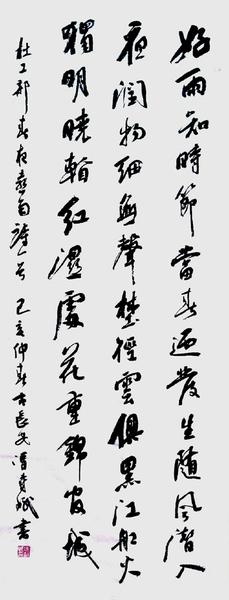 好雨知時節當春迺發生随風潛入
夜潤物細無聲埜徑雲俱黑江船火
獨明曉看紅濕處花重錦官城
杜工部春夜喜雨詩一首 己亥仲春古長安馮斌書